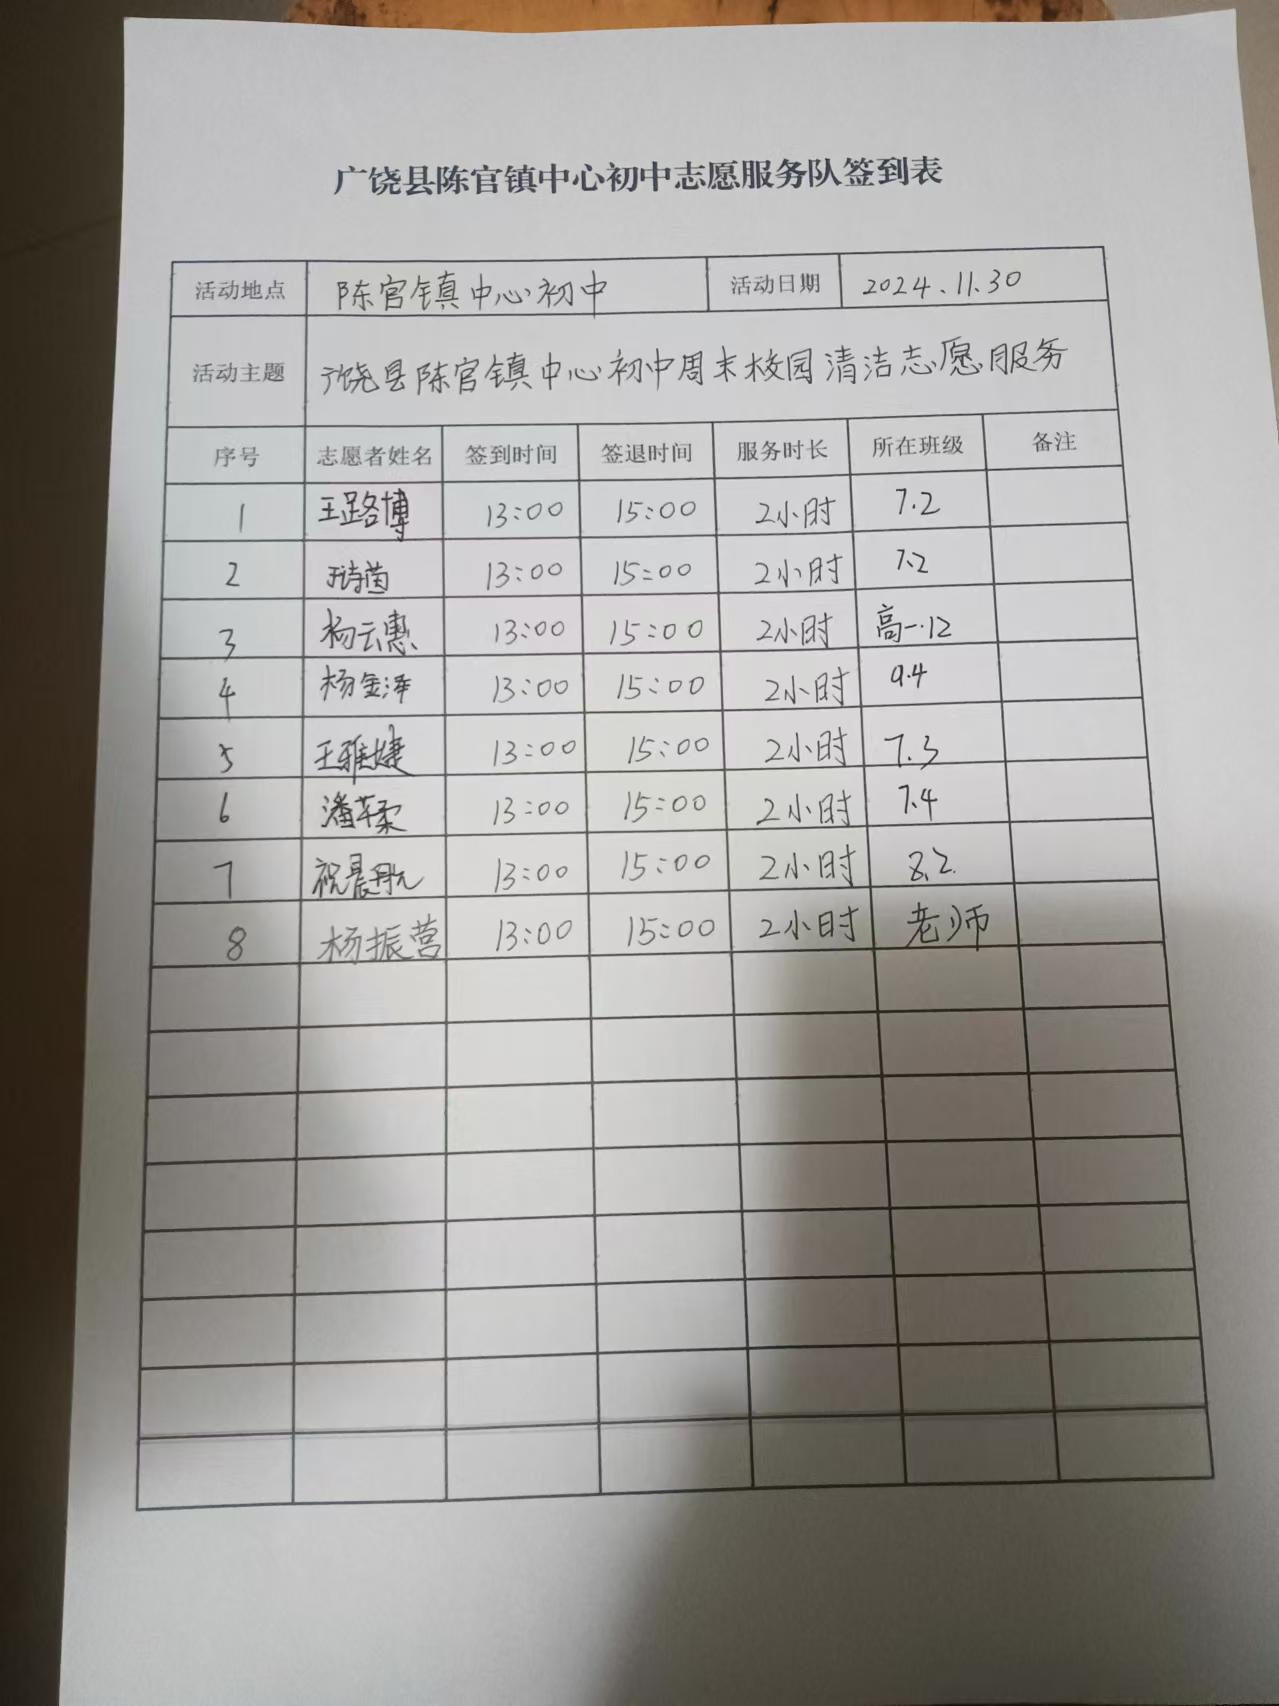 广饶县陈官镇中心初中志愿服务队签到表
活动地点 陈官镇中心初中 活动日期 2024.11.30
活动主题 广饶县陈官镇中心初中周末校园清洁志愿服务
序号 志愿者姓名 签到时间 签退时间 服务时长 所在班级 备注
1 王路博 13:00 15:00 2小时 7.2
2 13:00 15:00 2小时 7.2
3 杨云惠 13:00 15:00 2小时 高一.12
4 杨金泽 13:00 15:00 2小时 9.4
5 王雅婕 13:00 15:00 2小时 7.3
6 13:00 15:00 2小时 7.4
7 祝晨航 13:00 15:00 2小时 8.2
8 杨振营 13:00 15:00 2小时 老师